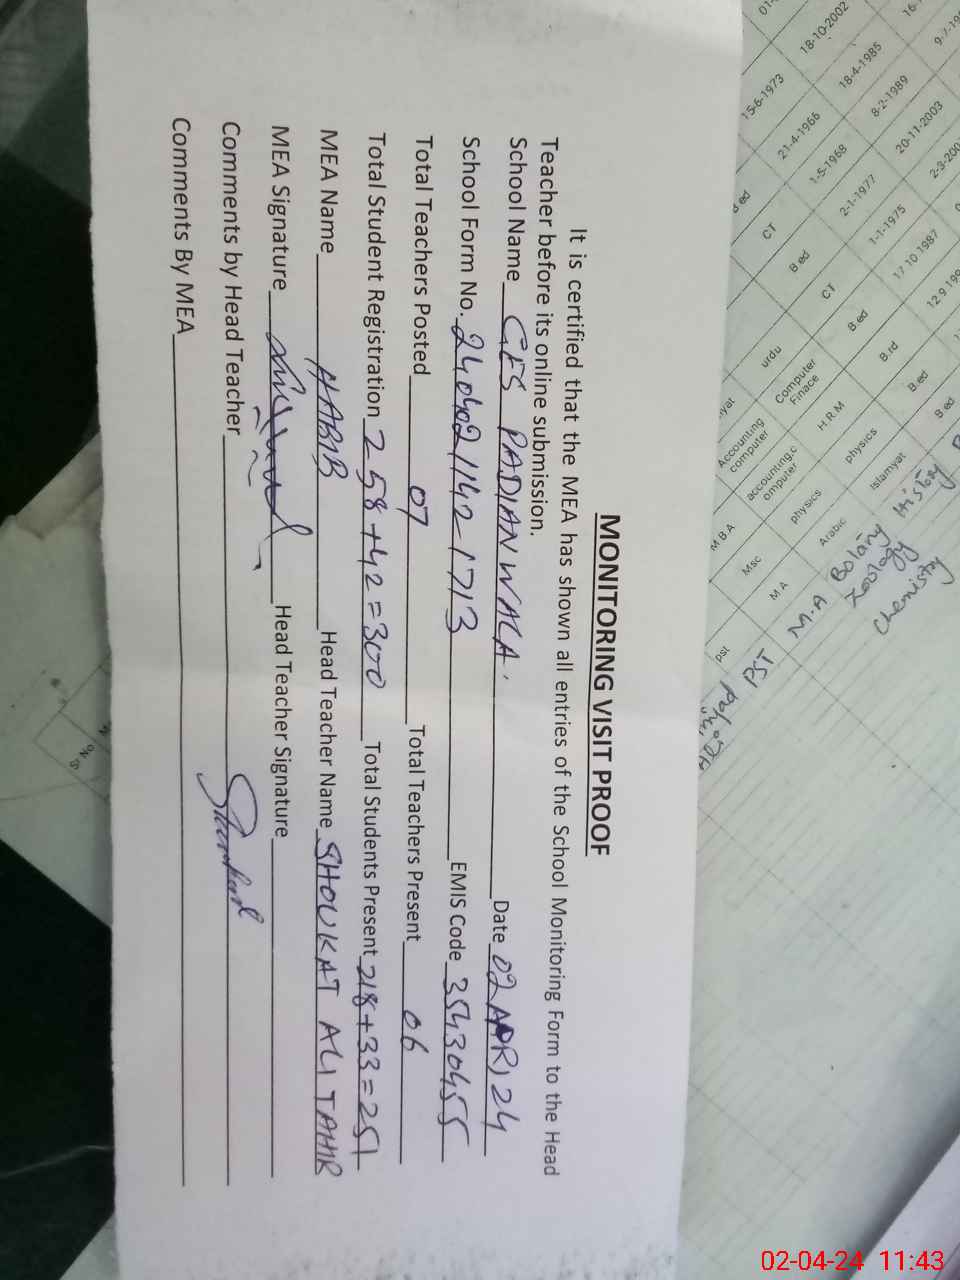 MONITORING VISIT PROOF
It is certified that the MEA has shown all entries of the School Monitoring Form to the Head
Teacher before its online submission.
School Name GES PADIANWALA. Date 02 APR 24
School Form No. 240402 1142-1713 EMIS Code 35430455
Total Teachers Posted 07 Total Teachers Present 06
Total Student Registration 258+42=300 Total Students Present 218+33=251
MEA Name HABIB Head Teacher Name SHOUKAT ALI TAHIR
MEA Signature Head Teacher Signature
Comments by Head Teacher
Comments By MEA
18-10-2002
15-6-1973
18-4-1985
9-7-19
21-4-1966
8-2-1989
1-5-1968
20-11-2003
2-1-1977
2-3-200
1-1-1975
17 10 1987
12 9 199
B ed
CT
B.ed
CT
B.ed
B.rd
B.ed
B ed
urdu
Computer
Finace
H.R.M
physics
Islamyat
History
Accounting
computer
accounting,c
omputer
physics
Arabic
Botany
Zoology
Chemistry
M B A
Msc
M A
M.A
pst
PST
Sr No
02-04-24 11:43